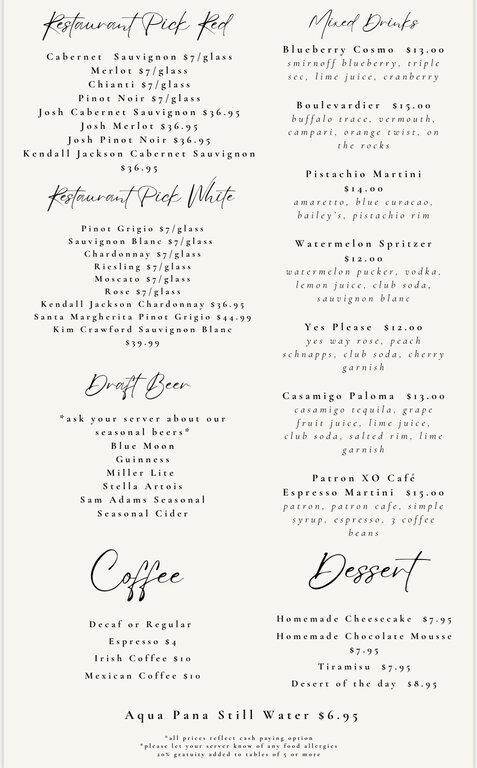 Restaurant Pick Red
Cabernet Sauvignon $7/glass
Merlot $7/glass
Chianti $7/glass
Pinot Noir $7/glass
Josh Cabernet Sauvignon $36.95
Josh Merlot $36.95
Josh Pinot Noir $36.95
Kendall Jackson Cabernet Sauvignon
$36.95
Restaurant Pick White
Pinot Grigio $7/glass
Sauvignon Blanc $7/glass
Chardonnay $7/glass
Riesling $7/glass
Moscato $7/glass
Rose $7/glass
Kendall Jackson Chardonnay $36.95
Santa Margherita Pinot Grigio $44.99
Kim Crawford Sauvignon Blanc
$39.99
Draft Beer
*ask your server about our
seasonal beers*
Blue Moon
Guinness
Miller Lite
Stella Artois
Sam Adams Seasonal
Seasonal Cider
Coffee
Decaf or Regular
Espresso $4
Irish Coffee $10
Mexican Coffee $10
Mixed Drinks
Blueberry Cosmo $13.00
smirnoff blueberry, triple
sec, lime juice, cranberry
Boulevardier $15.00
buffalo trace, vermouth,
campari, orange twist, on
the rocks
Pistachio Martini
$14.00
amaretto, blue curacao,
bailey's, pistachio rim
Watermelon Spritzer
$12.00
watermelon pucker, vodka,
lemon juice, club soda,
sauvignon blanc
Yes Please $12.00
yes way rose, peach
schnapps, club soda, cherry
garnish
Casamigo Paloma $13.00
casamigo tequila, grape
fruit juice, lime juice,
club soda, salted rim, lime
garnish
Patron XO Café
Espresso Martini $15.00
patron, patron cafe, simple
syrup, espresso, 3 coffee
beans
Dessert
Homemade Cheesecake $7.95
Homemade Chocolate Mousse
$7.95
Tiramisu $7.95
Desert of the day $8.95
Aqua Pana Still Water $6.95
*all prices reflect cash paying option
*please let your server know of any food allergies
20% gratuity added to tables of 5 or more